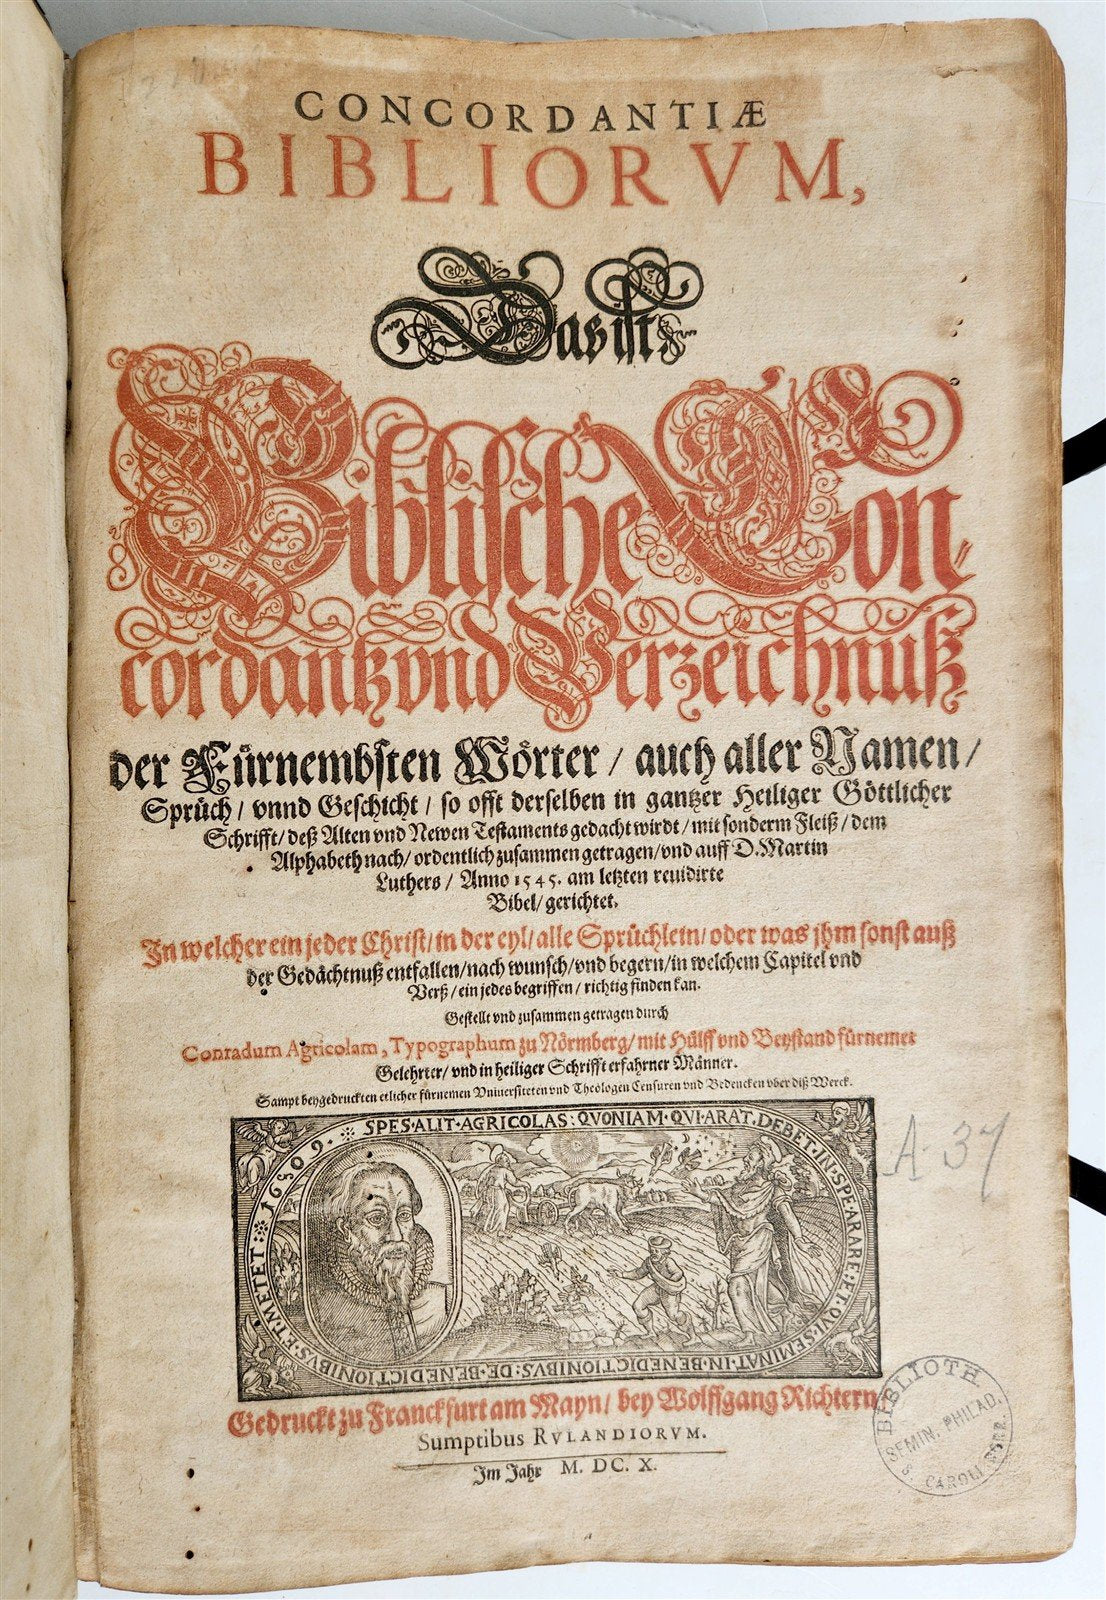 CONCORDANTIÆ
BIBLIORVM,
Das ist
Biblische Con-
cordantz vnd Verzeichnuß
der Fürnembsten Wörter / auch aller Namen /
Sprüch / vnnd Geschicht / so offt derselben in gantzer Heiliger Göttlicher
Schrifft / deß Alten vnd Newen Testaments gedacht wirdt / mit sonderm Fleiß / dem
Alphabeth nach / ordentlich zusammen getragen / vnd auff D. Martin
Luthers / Anno 1545. am letzten reuidirte
Bibel / gerichtet.
In welcher ein jeder Christ / in der eyl / alle Sprüchlein / oder was jhm sonst auß
der Gedächtnuß entfallen / nach wunsch / vnd begern / in welchem Capitel vnd
Verß / ein jedes begriffen / richtig finden kan.
Gestellt vnd zusammen getragen durch
Conradum Agricolam, Typographum zu Nörmberg / mit Hülff vnd Beystand fürnemer
Gelehrter / vnd in heiliger Schrifft erfahrner Männer.
Sampt beygedruckten etlicher fürnemen Vniuersiteten vnd Theologen Censuren vnd Bedencken vber diß Werck.
1609. SPES·ALIT·AGRICOLAS: QVONIAM·QVI·ARAT, DEBET·IN·SPE·ARARE: ET·QVI·SEMINAT·IN·BENEDICTIONIBVS: DE·BENEDICTIONIBVS·ET·METET
A. 37
Gedruckt zu Franckfurt am Mayn / bey Wolffgang Richtern /
Sumptibus RVLANDIORVM.
Im Jahr M. DC. X.
BIBLIOTH.
SEMIN. PHILAD.
S. CAROLI BORR.